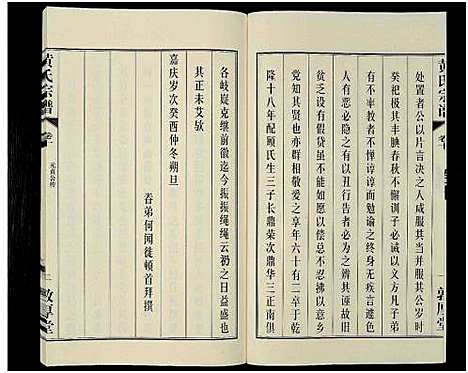 黄氏宗谱
卷十
一
敦厚堂
处置者公以片言决之人咸服其公并服其公岁时
癸祀极其丰腆春秋不懈训子必诫以义方凡子弟
有过者无不惮谆谆而勉谕之终身无疾言遽色其
贫乏之设有假贷虽不能如愿以偿总不忍拒以意乡
党有不平之鸣往往以一言剖而为之辨其诬故旧
间皆知其贤也亦群相爱敬享年六十有三卒于乾
隆十八年配顾氏生三子长鼎荣次鼎华三正南俱
各岐嶷克继前徽迄今振振绳绳云礽之日益盛也
其正未艾欤
嘉庆岁次癸酉仲冬朔旦
眷弟何闻徒顿首拜撰
黄氏宗谱
卷十
元贞公传
二
敦厚堂